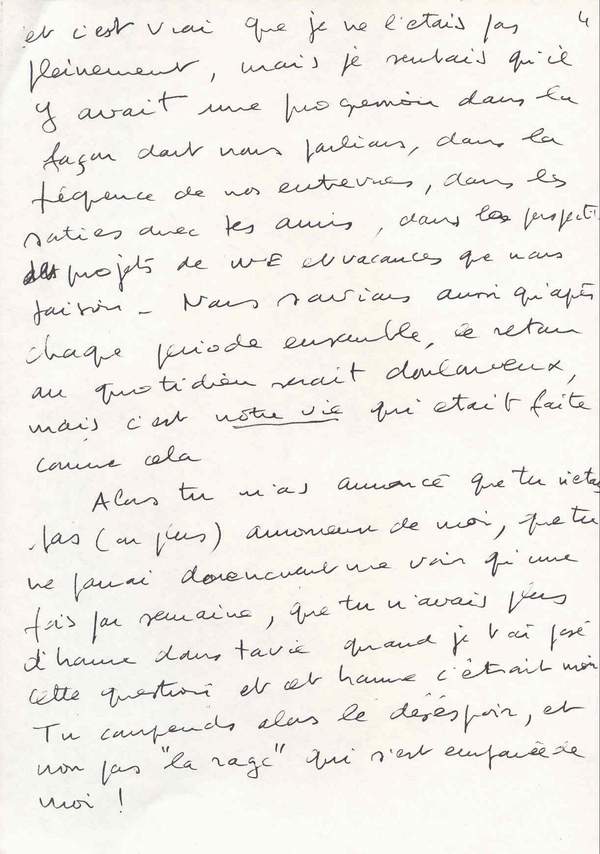 et c'est vrai que je ne l'étais pas 4
pleinement, mais je sentais qu'il
y avait une progression dans la
façon dont nous parlions, dans la
fréquence de nos entrevues, dans les
sorties avec tes amis, dans les
projets de WE et vacances que nous
faison - Nous savions aussi qu'après
chaque période ensemble, ce retour
au quotidien serait douloureux,
mais c'est notre vie qui était faite
comme cela
Alors tu m'as annoncé que tu n'étais
pas (ou plus) amoureux de moi, que tu
ne dorénavant me voir qu'une
fois par semaine, que tu n'avais plus
d'homme dans ta vie quand je t'ai posé
cette question et cet homme c'était moi
Tu comprends alors le désespoir, et
non pas "la rage" qui s'est emparée de
moi !